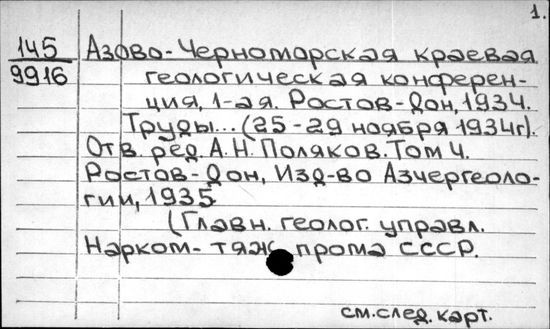 1.
145 Азово-Черноморская краевая
9916 геологическая конферен-
ция, 1-ая. Ростов-Дон, 1934.
Труды... (25-29 ноября 1934г).
Отв. ред. А.Н. Поляков. Том 4.
Ростов-Дон, Изд-во Азчергеоло-
гии, 1935
(Главн. геолог. управл.
Нарком-тяж прома СССР.
см. след. карт.